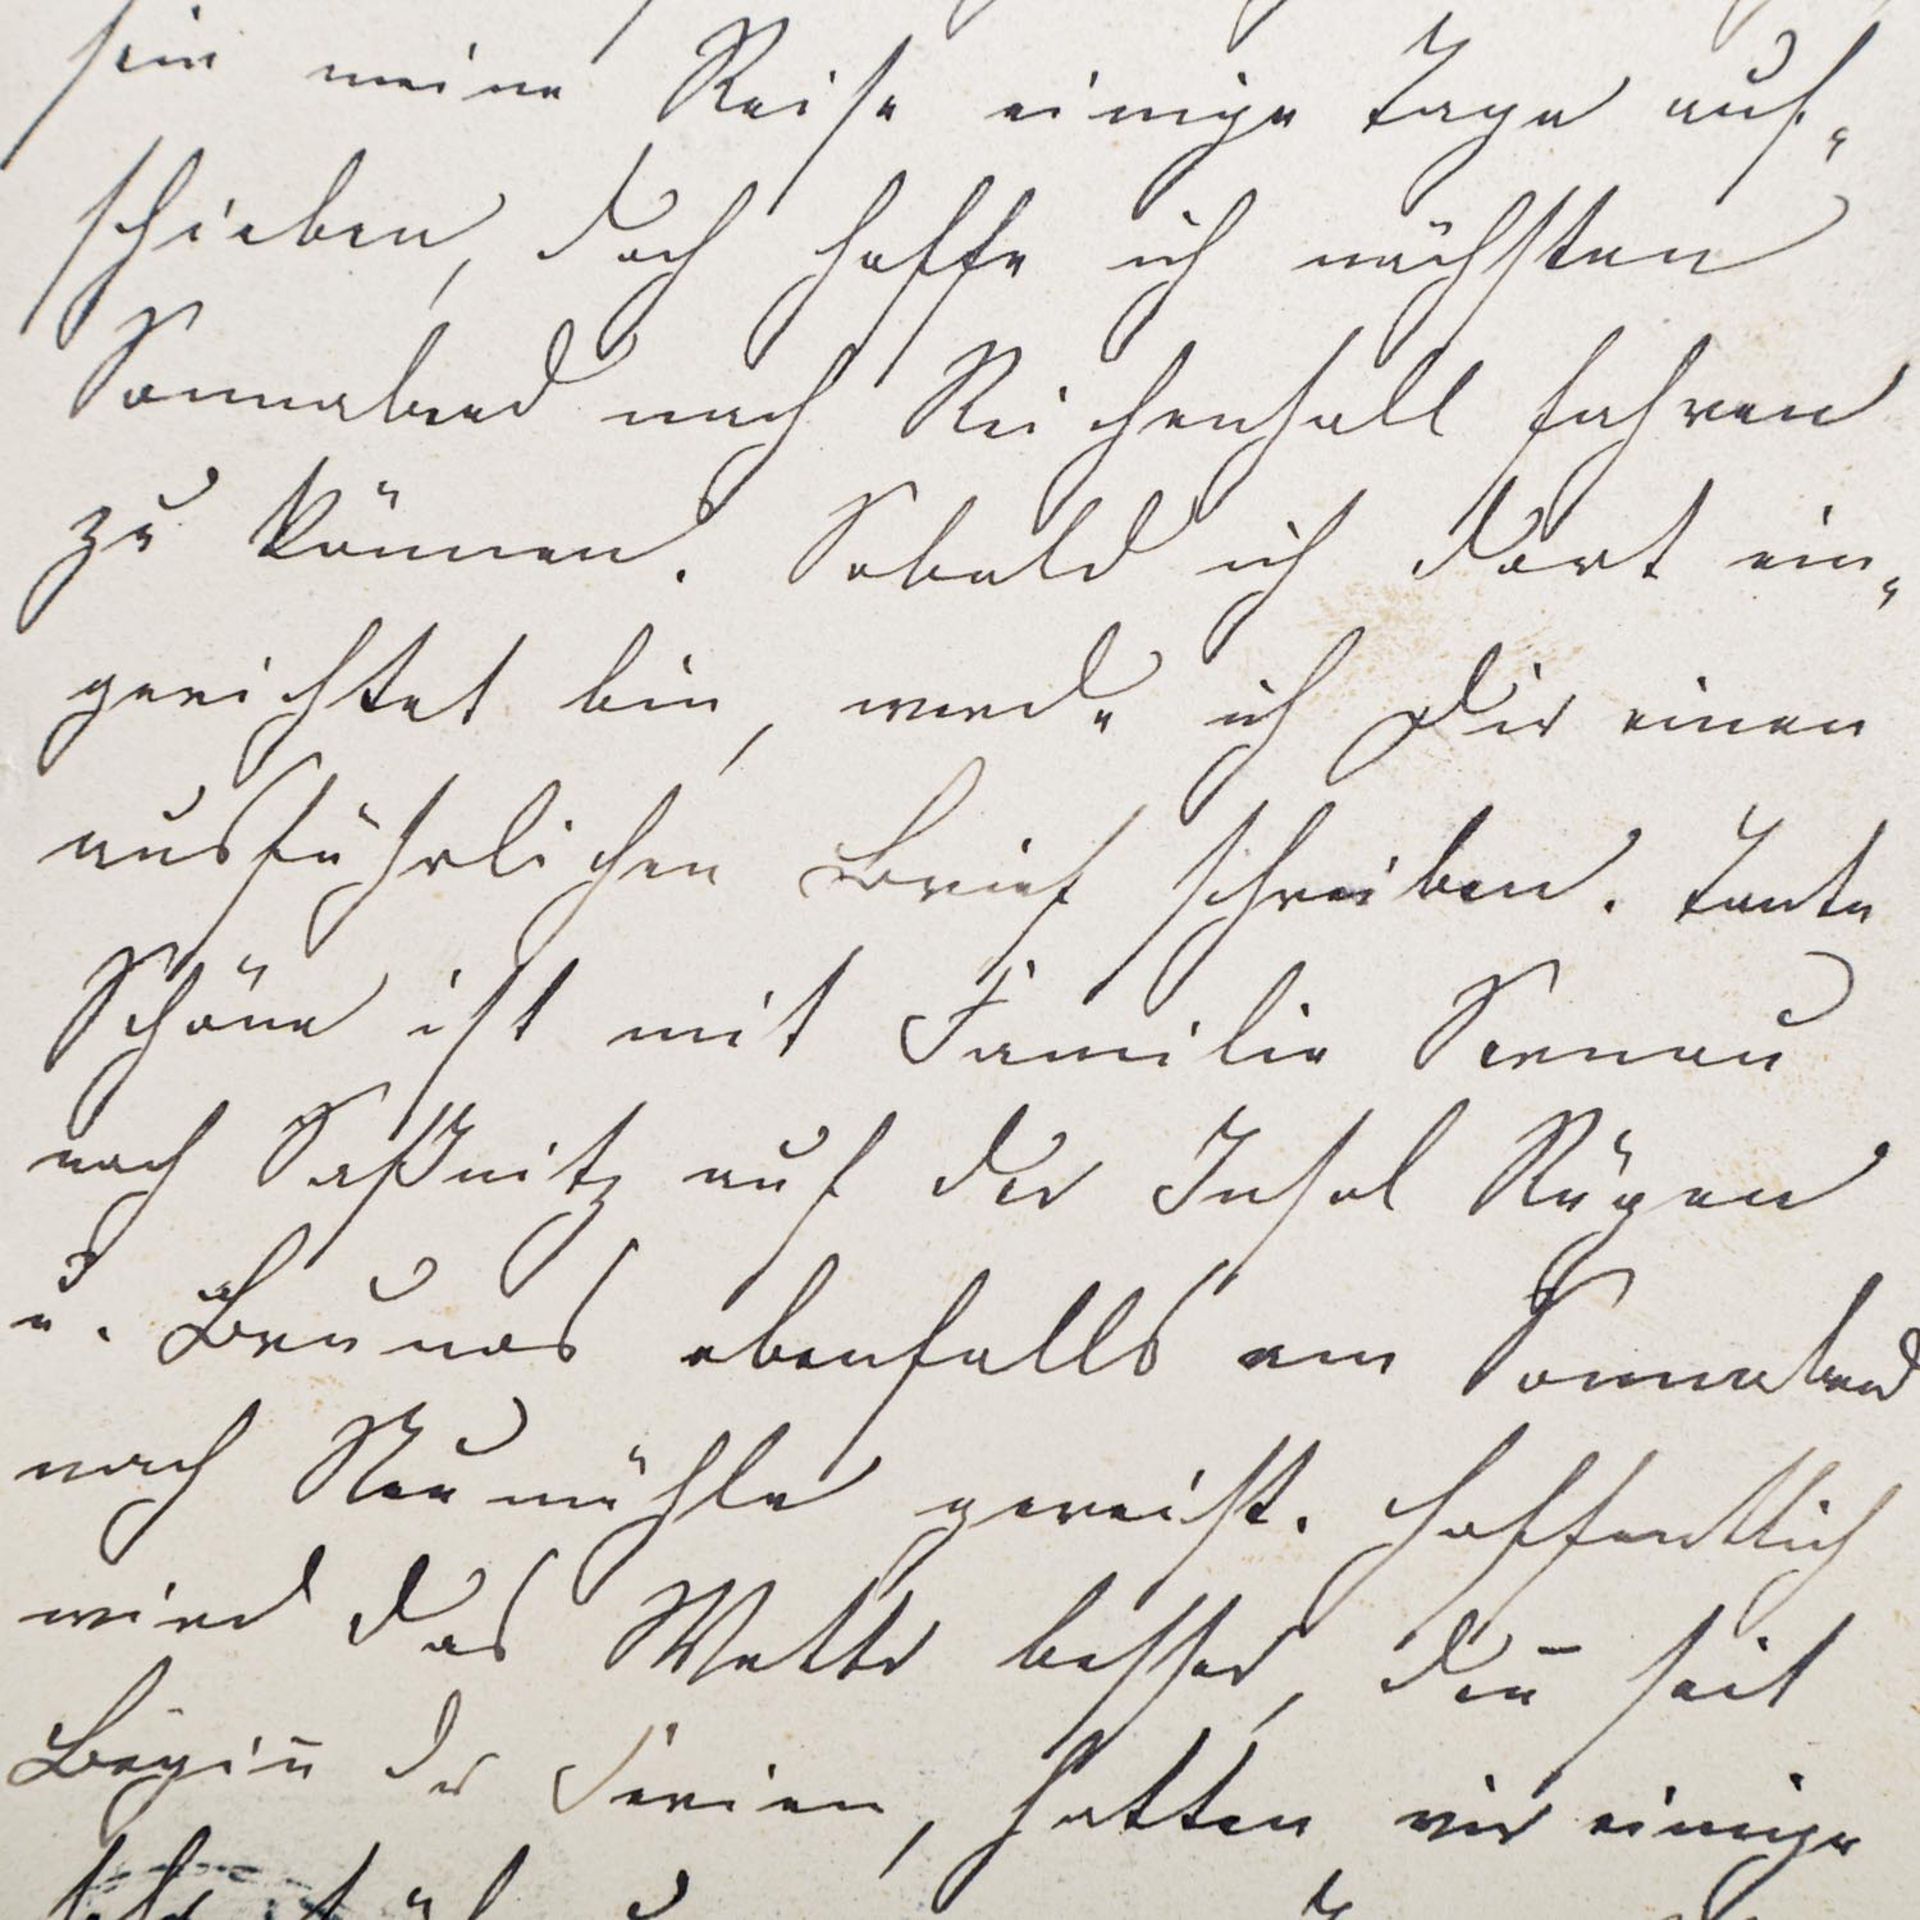 sein meine Reise einige Tage auf-
schieben, doch hoffe ich nächsten
Sonnabend nach Reichenhall fahren
zu können. Sobald ich dort ein-
gerichtet bin, werde ich Dir einen
ausführlichen Brief schreiben. Tante
Schöne ist mit Familie
nach Saßnitz auf der Insel Rügen
u. Brunos ebenfalls am Sonnabend
nach Neumühle gereist. Hoffentlich
wird das Wetter besser, den̄ seit
Begin̄ der Ferien, hatten wir einige